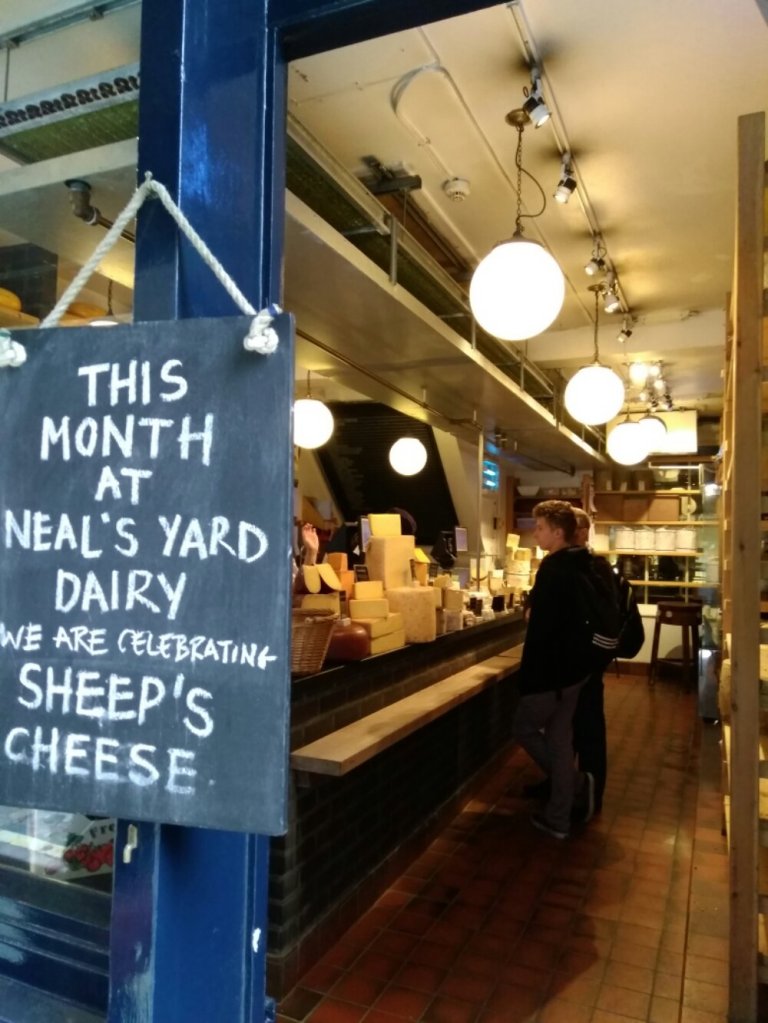 THIS
MONTH
AT
NEAL'S YARD
DAIRY
WE ARE CELEBRATING
SHEEP'S
CHEESE.